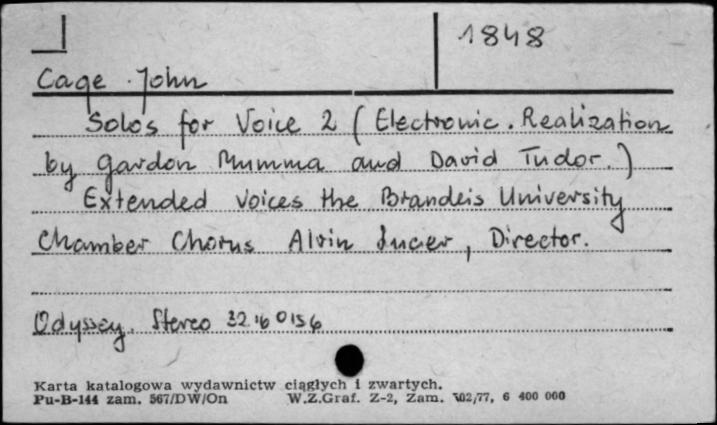 1848
Cage John
Solos for Voice 2 (Electronic. Realization
by Gardon Mumma and David Tudor.)
Extended voices the Brandeis University
Chamber Chorus Alvin Lucier, Director.
Odyssey. Stereo 32 16 0156
Karta katalogowa wydawnictw ciągłych i zwartych.
Pu-B-144 zam. 567/DW/On W.Z.Graf. Z-2, Zam. 702/77, 6 400 000